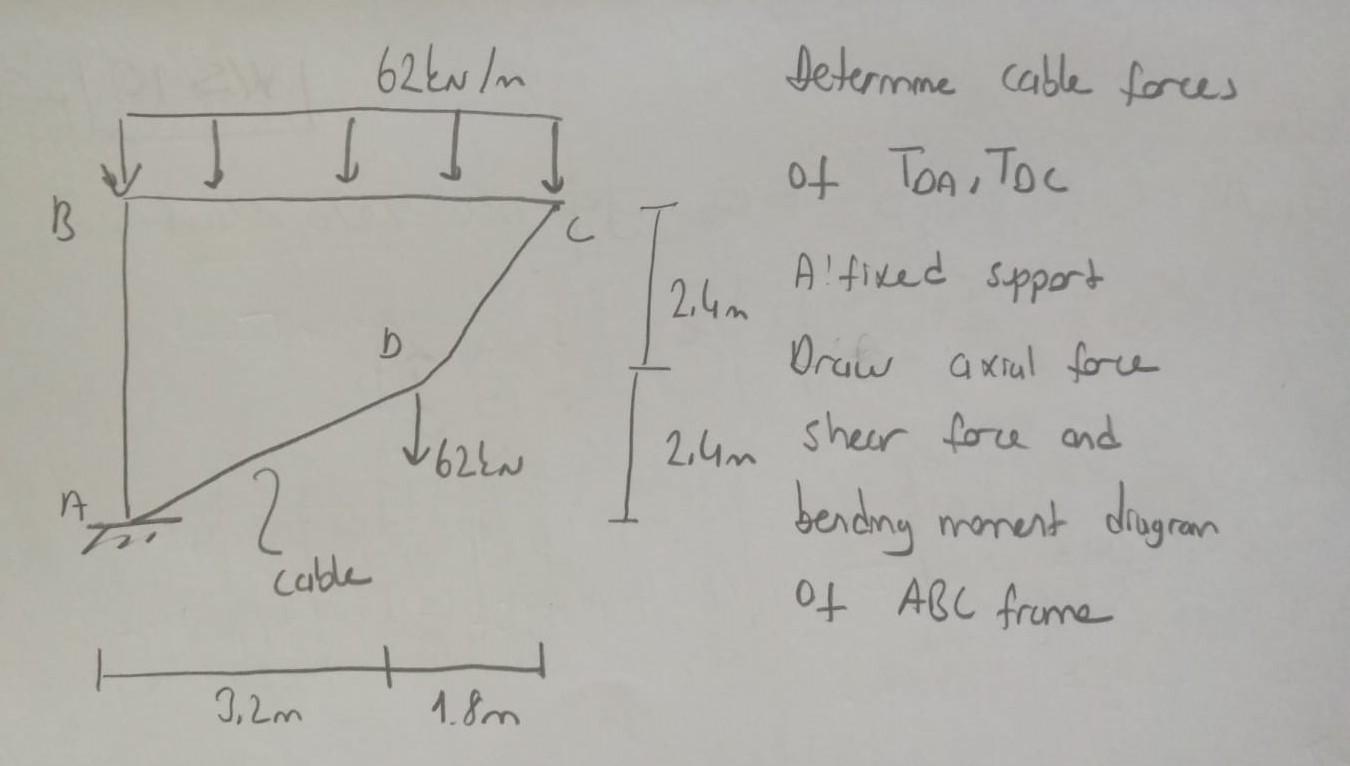 62kN/m
Determine cable forces
Of TDA, TDC
B
C
A: fixed spport
2,4m
D
Draw axial force
2,4m
shear force and
62kN
A
bending moment diagram
cable
Of ABC frame
3,2m
1.8m